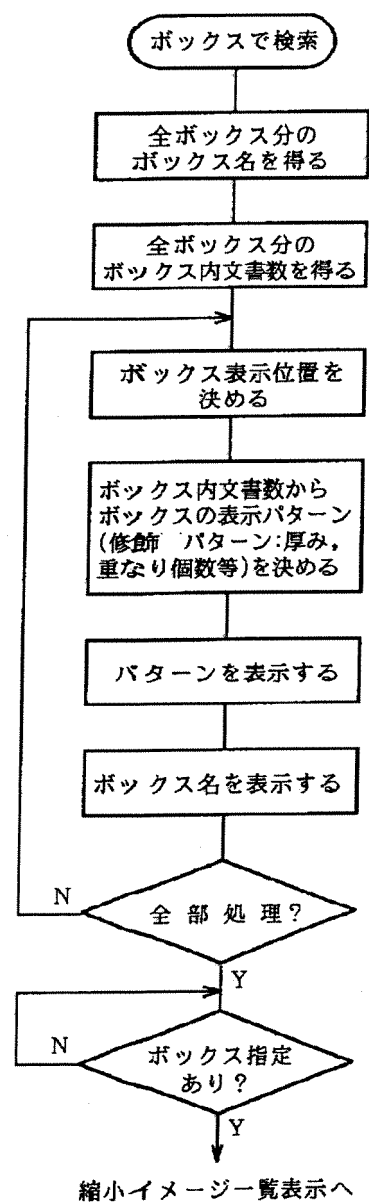 ボックスで検索
全ボックス分の
ボックス名を得る
全ボックス分の
ボックス内文書数を得る
ボックス表示位置を
決める
ボックス内文書数から
ボックスの表示パターン
(修飾 パターン:厚み,
重なり個数等)を決める
パターンを表示する
ボックス名を表示する
N
全部処理?
Y
N
ボックス指定
あり?
Y
縮小イメージ一覧表示へ